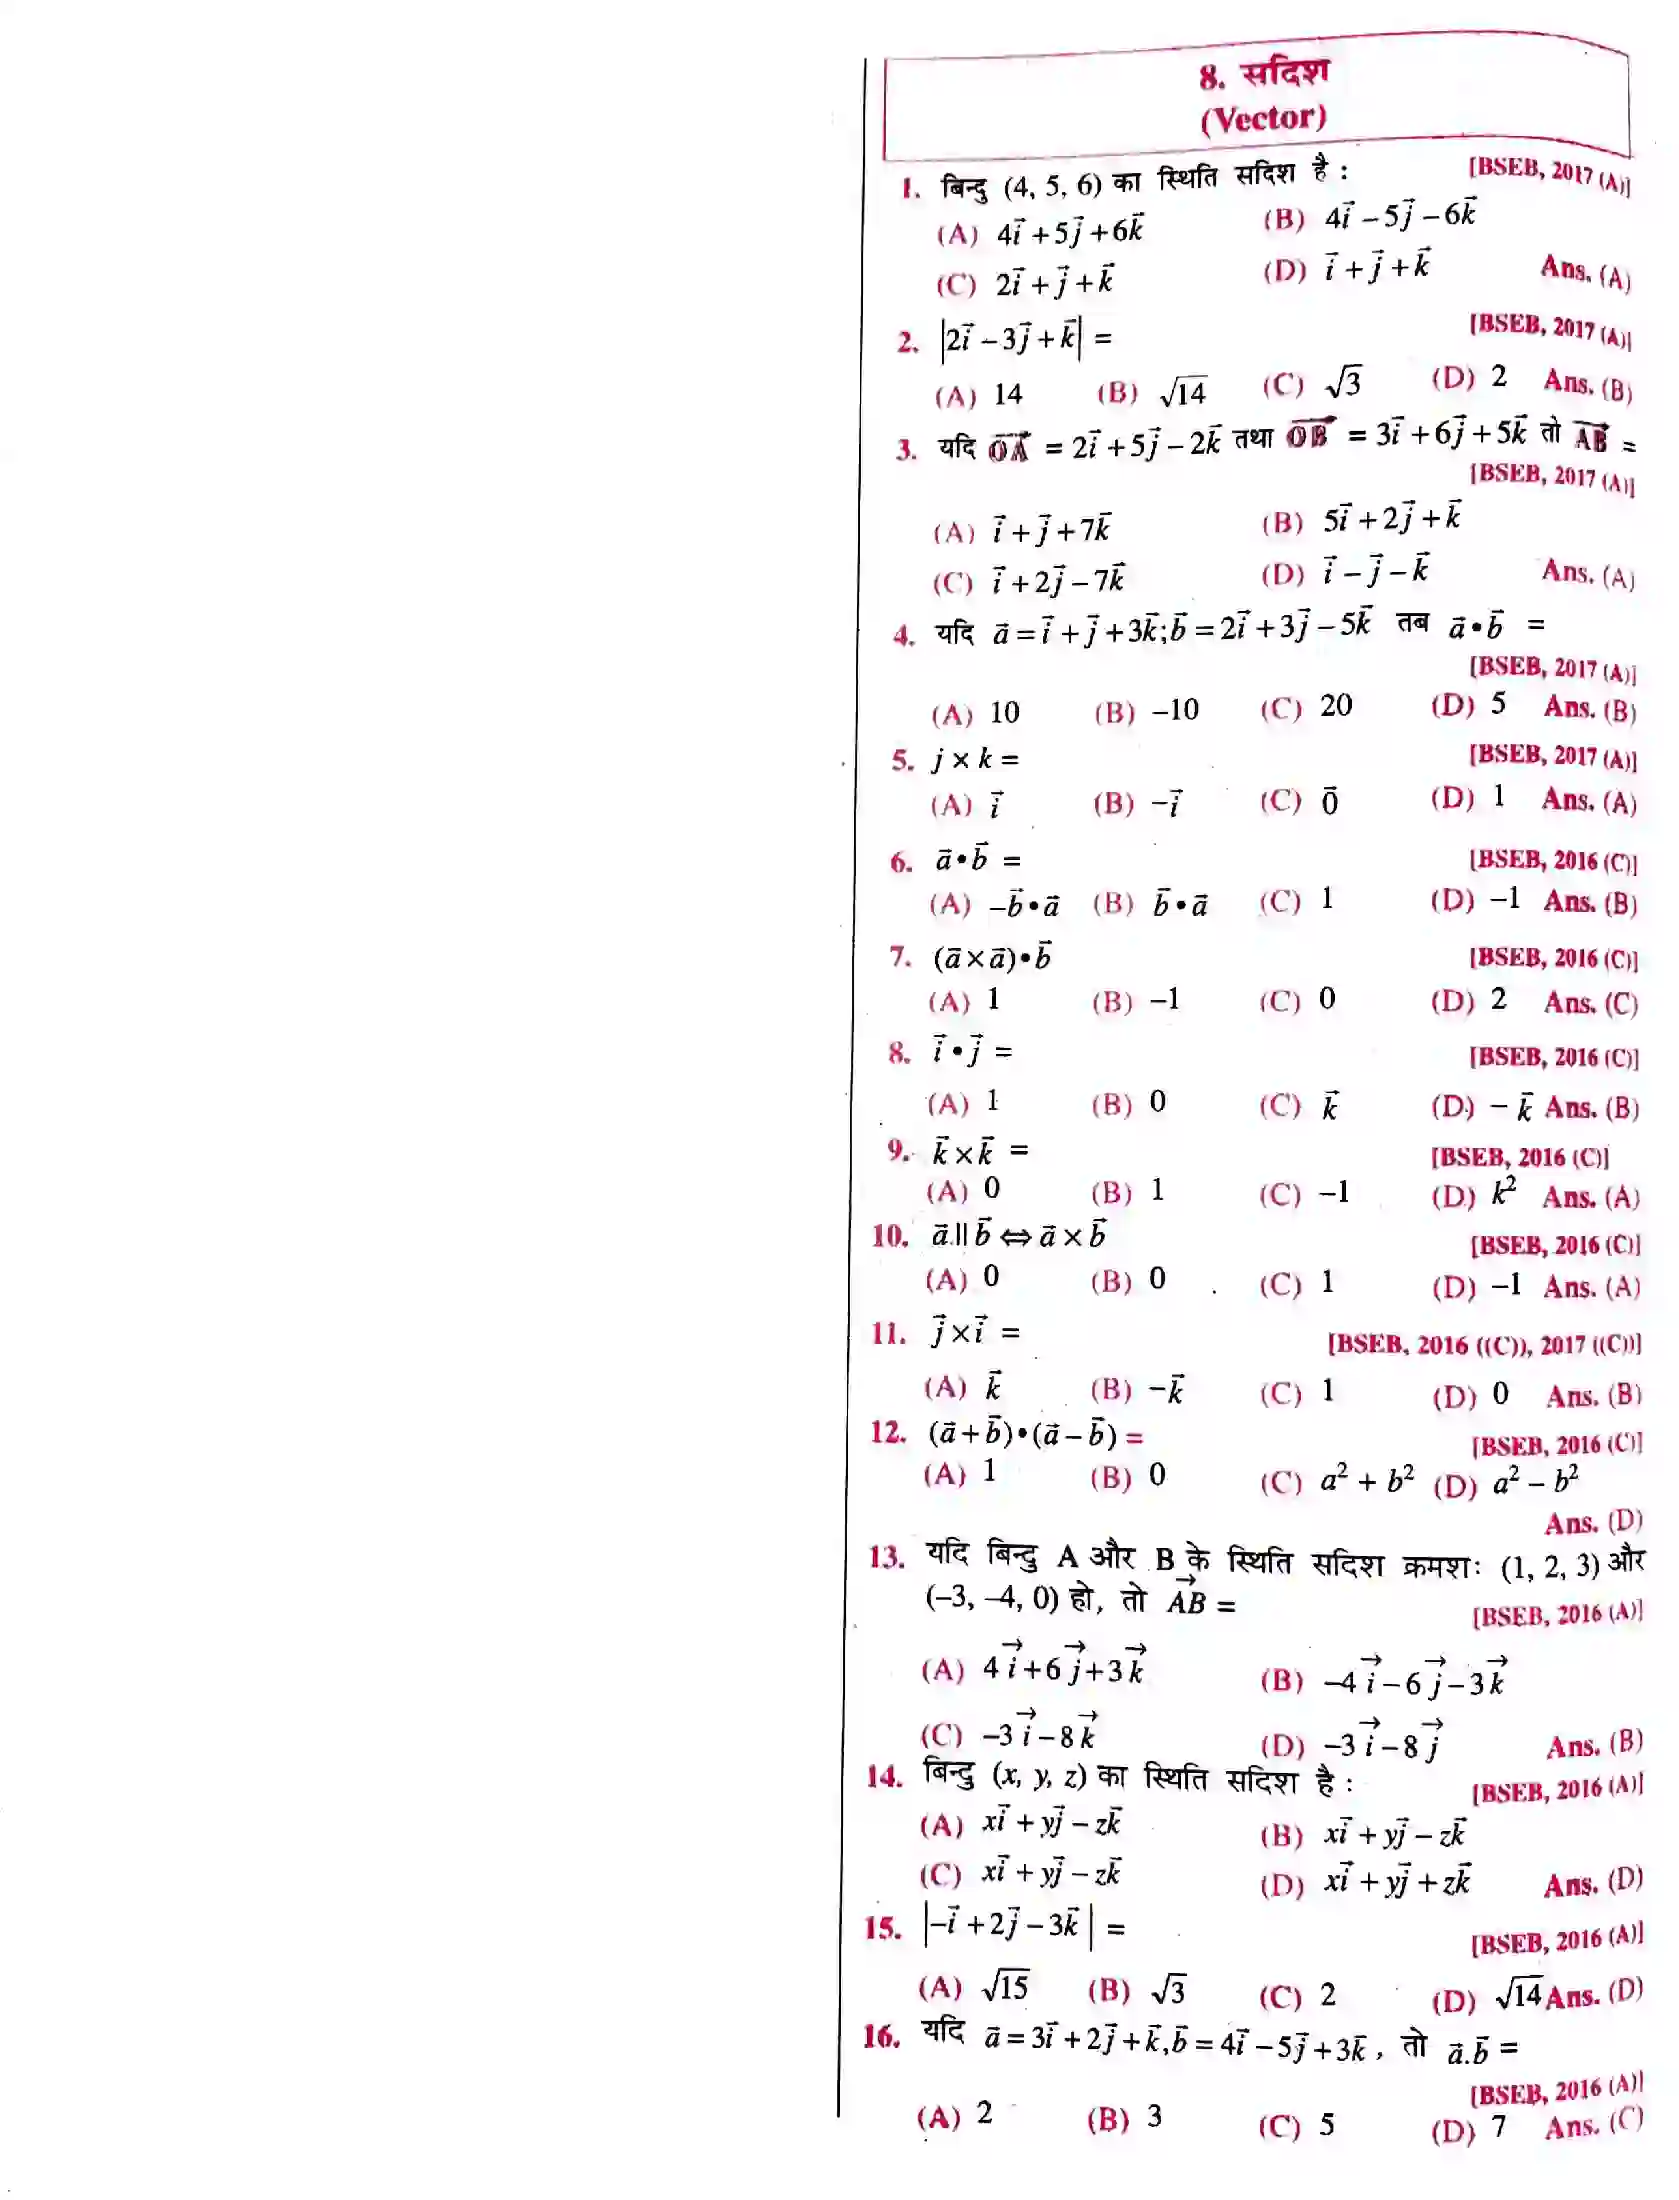 8. सदिश
(Vector)
1. बिन्दु (4, 5, 6) का स्थिति सदिश है : [BSEB, 2017 (A)]
(A) 4i⃗ + 5j⃗ + 6k⃗ (B) 4i⃗ – 5j⃗ – 6k⃗
(C) 2i⃗ + j⃗ + k⃗ (D) i⃗ + j⃗ + k⃗ Ans. (A)
2. |2i⃗ – 3j⃗ + k⃗| = [BSEB, 2017 (A)]
(A) 14 (B) √14 (C) √3 (D) 2 Ans. (B)
3. यदि O⃗A⃗ = 2i⃗ + 5j⃗ – 2k⃗ तथा O⃗B⃗ = 3i⃗ + 6j⃗ + 5k⃗ तो A⃗B⃗ =
[BSEB, 2017 (A)]
(A) i⃗ + j⃗ + 7k⃗ (B) 5i⃗ + 2j⃗ + k⃗
(C) i⃗ + 2j⃗ – 7k⃗ (D) i⃗ – j⃗ – k⃗ Ans. (A)
4. यदि a⃗ = i⃗ + j⃗ + 3k⃗; b⃗ = 2i⃗ + 3j⃗ – 5k⃗ तब a⃗ • b⃗ =
[BSEB, 2017 (A)]
(A) 10 (B) –10 (C) 20 (D) 5 Ans. (B)
5. j × k = [BSEB, 2017 (A)]
(A) i⃗ (B) –i⃗ (C) 0⃗ (D) 1 Ans. (A)
6. a⃗ • b⃗ = [BSEB, 2016 (C)]
(A) –b⃗ • a⃗ (B) b⃗ • a⃗ (C) 1 (D) –1 Ans. (B)
7. (a⃗ × a⃗) • b⃗ [BSEB, 2016 (C)]
(A) 1 (B) –1 (C) 0 (D) 2 Ans. (C)
8. i⃗ • j⃗ = [BSEB, 2016 (C)]
(A) 1 (B) 0 (C) k⃗ (D) – k⃗ Ans. (B)
9. k⃗ × k⃗ = [BSEB, 2016 (C)]
(A) 0 (B) 1 (C) –1 (D) k² Ans. (A)
10. a⃗ || b⃗ ⇔ a⃗ × b⃗ [BSEB, 2016 (C)]
(A) 0 (B) 0 (C) 1 (D) –1 Ans. (A)
11. j⃗ × i⃗ = [BSEB, 2016 ((C)), 2017 ((C))]
(A) k⃗ (B) –k⃗ (C) 1 (D) 0 Ans. (B)
12. (a⃗ + b⃗) • (a⃗ – b⃗) = [BSEB, 2016 (C)]
(A) 1 (B) 0 (C) a² + b² (D) a² – b²
Ans. (D)
13. यदि बिन्दु A और B के स्थिति सदिश क्रमशः (1, 2, 3) और
(–3, –4, 0) हो, तो A⃗B⃗ = [BSEB, 2016 (A)]
(A) 4i⃗ + 6j⃗ + 3k⃗ (B) –4i⃗ – 6j⃗ – 3k⃗
(C) –3i⃗ – 8k⃗ (D) –3i⃗ – 8j⃗ Ans. (B)
14. बिन्दु (x, y, z) का स्थिति सदिश है : [BSEB, 2016 (A)]
(A) xi⃗ + yj⃗ – zk⃗ (B) xi⃗ + yj⃗ – zk⃗
(C) xi⃗ + yj⃗ – zk⃗ (D) xi⃗ + yj⃗ + zk⃗ Ans. (D)
15. |–i⃗ + 2j⃗ – 3k⃗| = [BSEB, 2016 (A)]
(A) √15 (B) √3 (C) 2 (D) √14 Ans. (D)
16. यदि a⃗ = 3i⃗ + 2j⃗ + k⃗, b⃗ = 4i⃗ – 5j⃗ + 3k⃗, तो a⃗.b⃗ =
[BSEB, 2016 (A)]
(A) 2 (B) 3 (C) 5 (D) 7 Ans. (C)